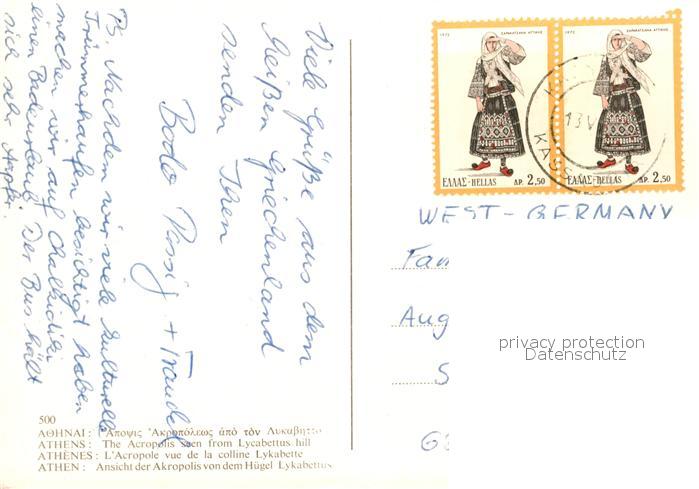 Viele Grüße aus dem
heißen Griechenland
senden Ihnen
Bodo + Traudel
PS. Nachdem wir viele kulturelle
Trümmerhaufen besichtigt haben
machen wir auf Chalkidiki
einen Badeurlaub. Der Bus hält
sich sehr
1972 ΣΑΡΑΚΑΤΣΑΝΑ ΑΤΤΙΚΗΣ
ΕΛΛΑΣ-HELLAS ΔΡ. 2,50
1972 ΣΑΡΑΚΑΤΣΑΝΑ ΑΤΤΙΚΗΣ
ΕΛΛΑΣ-HELLAS ΔΡ. 2,50
13 V
WEST-GERMANY
Fam
Aug
S
privacy protection
Datenschutz
500
ΑΘΗΝΑΙ: Ἄποψις Ἀκροπόλεως ἀπὸ τὸν Λυκαβηττὸ
ATHENS: The Acropolis seen from Lycabettus hill
ATHÈNES: L'Acropole vue de la colline Lykabette
ATHEN: Ansicht der Akropolis von dem Hügel Lykabettus